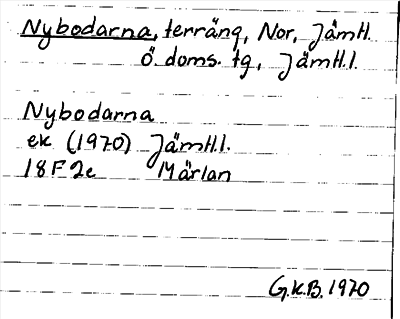 Nybodarna, terräng, Nor, Jämtl.
Ö. doms. tg, Jämtl.l.
Nybodarna
ek (1970) Jämtl.l.
18F2e Märlan
G.K.B. 1970